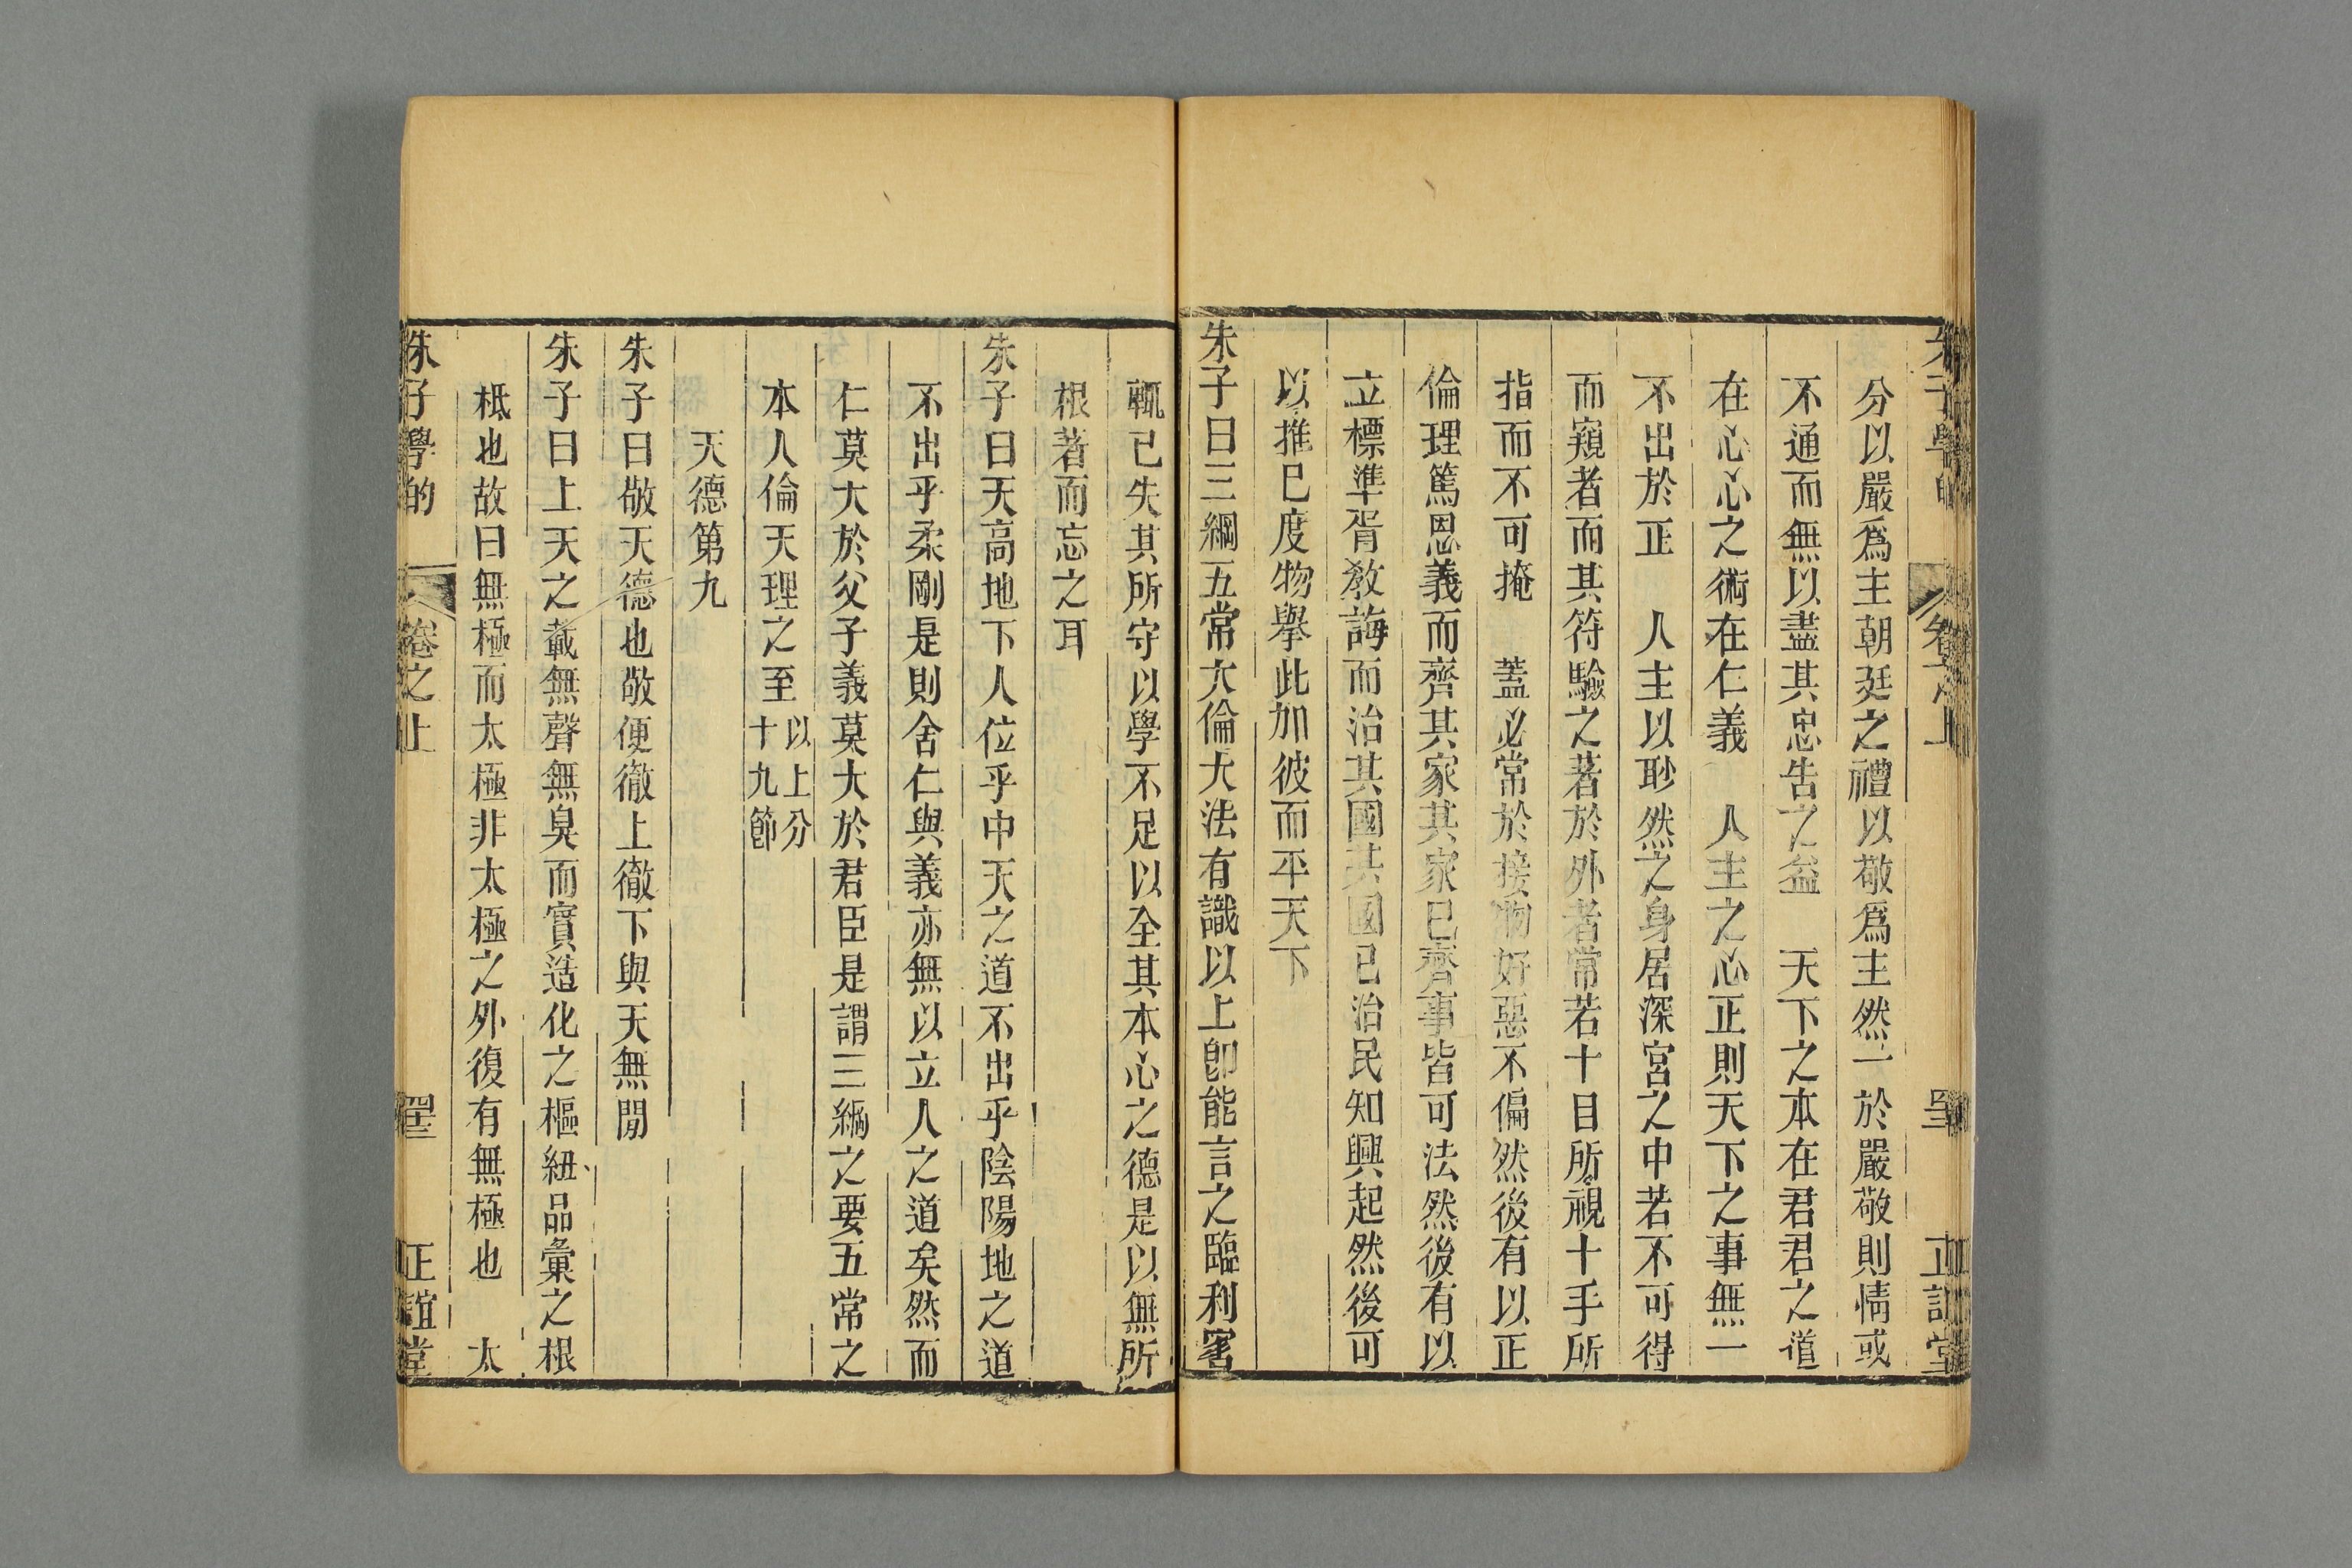 朱子學的 卷之上 正誼堂
分以嚴爲主朝廷之禮以敬爲主然一於嚴敬則情或
不通而無以盡其忠告之益 天下之本在君君之道
在心心之術在仁義 人主之心正則天下之事無一
不出於正 人主以眇然之身居深宮之中若不可得
而窺者而其符驗之著於外者常若十目所視十手所
指而不可掩 蓋必常於接物好惡不偏然後有以正
倫理篤恩義而齊其家其家已齊事皆可法然後有以
立標準胥教誨而治其國其國已治民知興起然後可
以推已度物舉此加彼而平天下
朱子曰三綱五常大倫大法有識以上卽能言之臨利害
輒已失其所守以學不足以全其本心之德是以無所
根著而忘之耳
朱子曰天高地下人位乎中天之道不出乎陰陽地之道
不出乎柔剛是則舍仁與義亦無以立人之道矣然而
仁莫大於父子義莫大於君臣是謂三綱之要五常之
本人倫天理之至 以上分十九節
天德第九
朱子曰敬天德也敬便徹上徹下與天無閒
朱子曰上天之載無聲無臭而實造化之樞紐品彙之根
柢也故曰無極而太極非太極之外復有無極也 太
朱子學的 卷之上 正誼堂